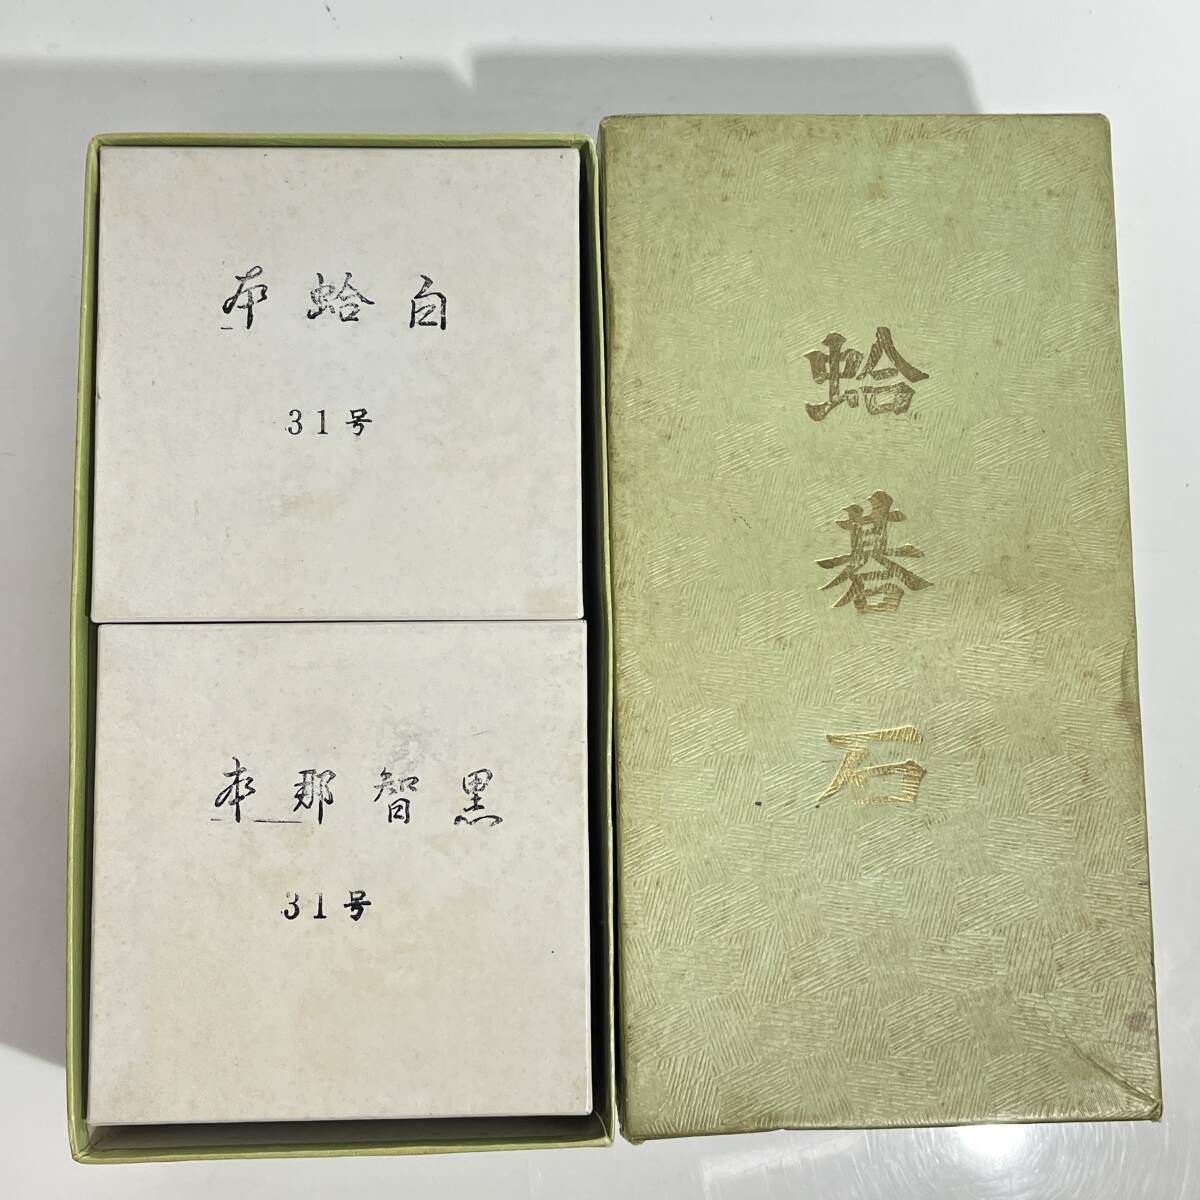 本蛤白
31号
本那智黒
31号
蛤碁石